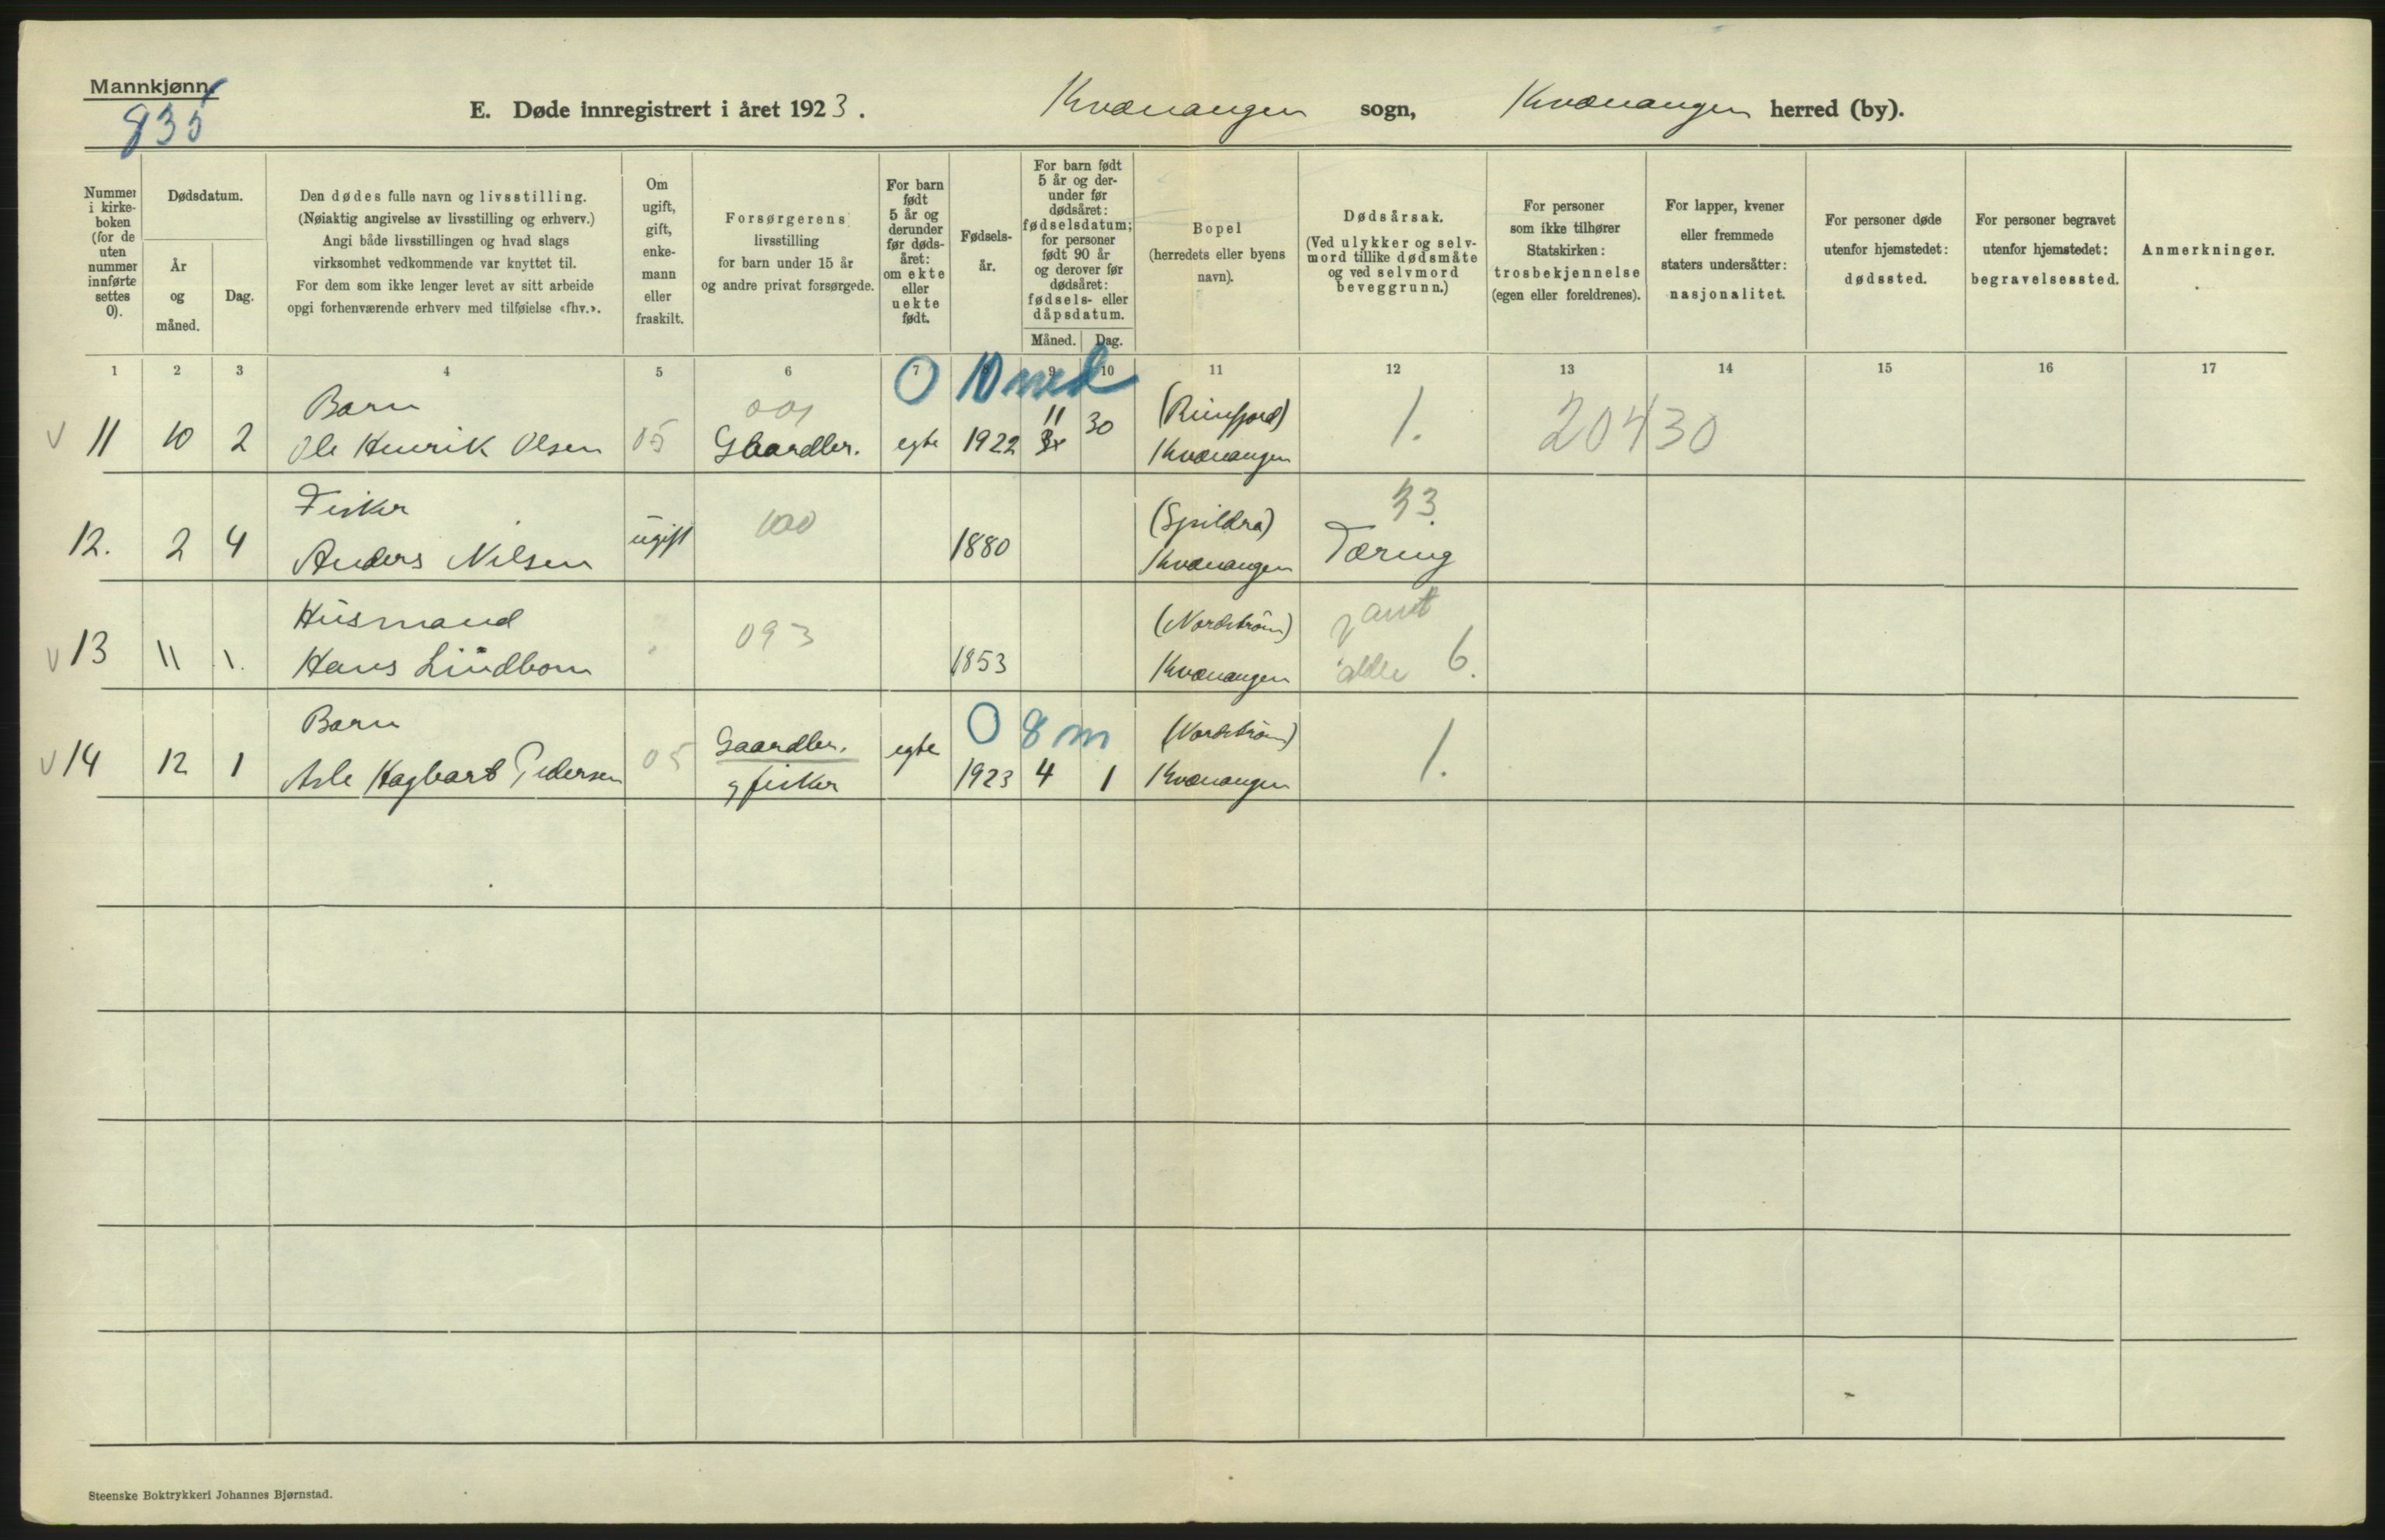 Mannkjønn.
835
E. Døde innregistrert i året 1923. Kvænangen sogn, Kvænangen herred (by).
Nummer i kirkeboken (for de uten nummer innførte settes 0).
Dødsdatum.
År og måned.
Dag.
Den dødes fulle navn og livsstilling.
(Nøiaktig angivelse av livsstilling og erhverv.)
Angi både livsstillingen og hvad slags
virksomhet vedkommende var knyttet til.
For dem som ikke lenger levet av sitt arbeide
opgi forhenværende erhverv med tilføielse «fhv.».
Om ugift, gift, enkemann eller fraskilt.
Forsørgerens
livsstilling
for barn under 15 år
og andre privat forsørgede.
For barn født 5 år og derunder før dødsåret: om ekte eller uekte født.
Fødselsår.
For barn født 5 år og derunder før dødsåret: fødselsdatum; for personer født 90 år og derover før dødsåret: fødsels- eller dåpsdatum.
Måned. Dag.
Bopel
(herredets eller byens
navn).
Dødsårsak.
(Ved ulykker og selvmord tillike dødsmåte og ved selvmord beveggrunn.)
For personer
som ikke tilhører
Statskirken:
trosbekjennelse
(egen eller foreldrenes).
For lapper, kvener
eller fremmede
staters undersåtter:
nasjonalitet.
For personer døde
utenfor hjemstedet:
dødssted.
For personer begravet
utenfor hjemstedet:
begravelsessted.
Anmerkninger.
1 2 3 4 5 6 7 8 9 10 11 12 13 14 15 16 17
0 10 med
Barn 001 11 30
V 11 10 2 Ole Henrik Olsen 05 Gbardbr. egte 1922 Kvænangen 1. 20430
Fisker 100 (Spildra) 33
12. 2 4 Anders Nilsen ugift 1880 Kvænangen Tæring
Husmand 093 (Nordstrøm)
V 13 11 1. Hans Lindbom 1853 Kvænangen 6.
Barn Gaardbr. 0 8 m (Nordstrøm)
V 14 12 1 Asle Hagbart Pedersen 05 g fisker egte 1923 4 1 Kvænangen 1.
Steenske Boktrykkeri Johannes Bjørnstad.